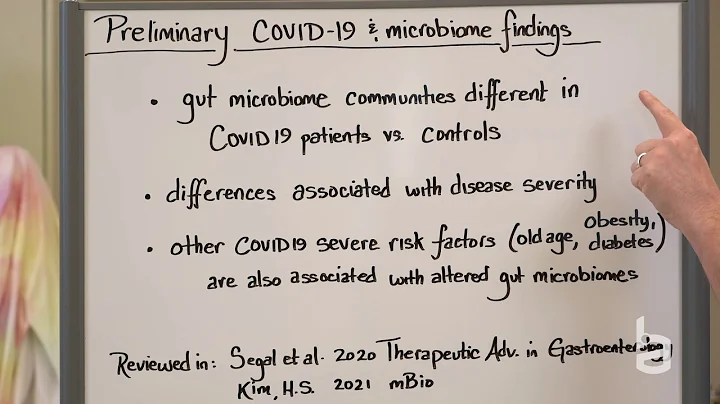 Preliminary COVID-19 & microbiome findings
• gut microbiome communities different in
COVID19 patients vs. controls
• differences associated with disease severity
• other COVID19 severe risk factors (old age, obesity, diabetes)
are also associated with altered gut microbiomes
Reviewed in: Segal et al. 2020 Therapeutic Adv. in Gastroenterology
Kim, H.S. 2021 mBio